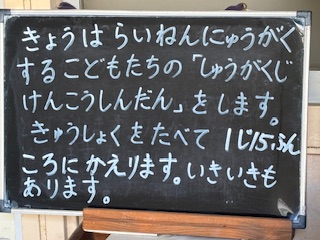 きょうは らいねんにゅうがく
するこどもたちの「しゅうがくじ
けんこうしんだん」をします。
きゅうしょくをたべて 1じ15ふん
ころに かえります。いきいきも
あります。